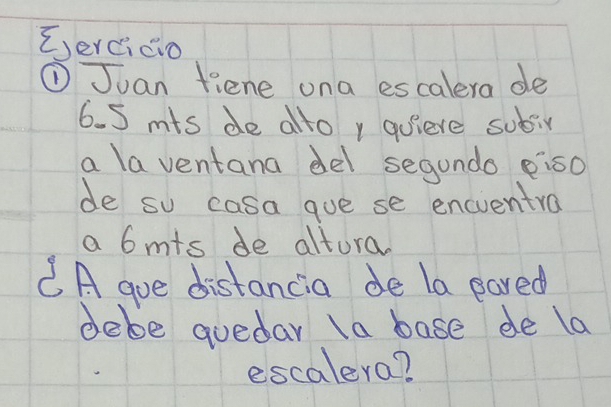 Ejercicio
① Juan tiene una escalera de
6.5 mts de alto y quiere subir
a la ventana del segundo piso
de su casa que se encuentra
a 6mts de altura.
¿A que distancia de la pared
debe quedar la base de la
escalera?